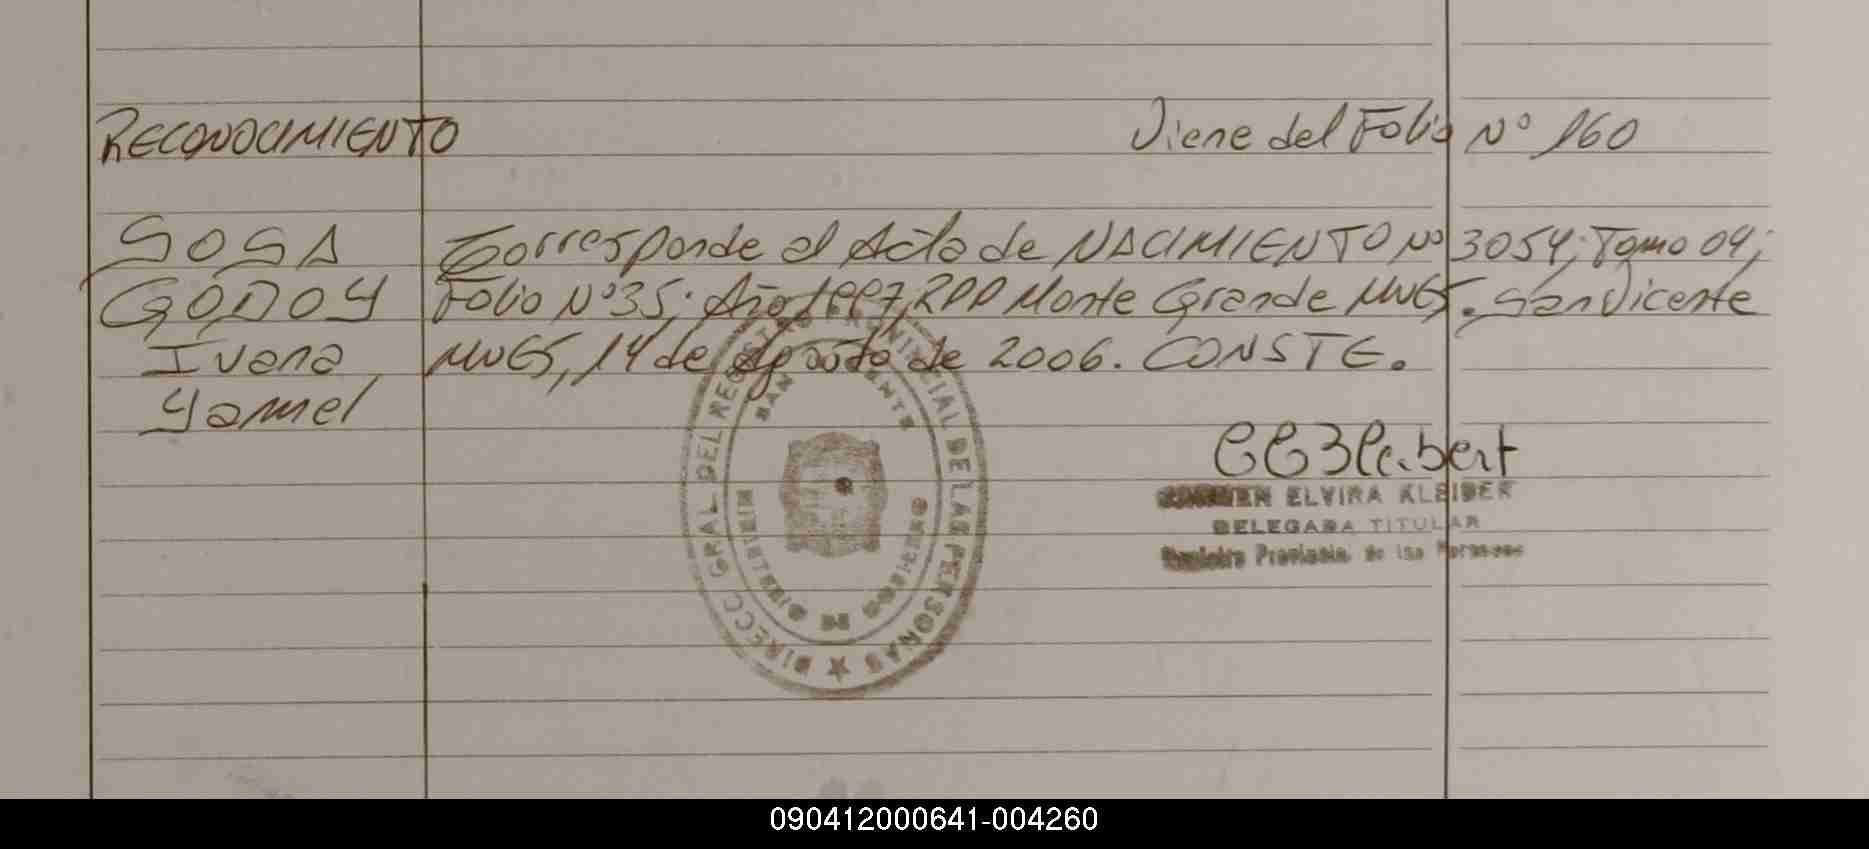 RECONOCIMIENTO Viene del Folio Nº 160
SOSA Corresponde al Acta de NACIMIENTO Nº 3054; Tomo 04;
GODOY Folio Nº 35; Año 1997, RDP Monte Grande . San Vicente
Ivana , 14 de Agosto de 2006. CONSTE.
Yamel
DIRECC. GRAL DEL REGISTRO PROVINCIAL DE LAS PERSONAS
SAN VICENTE
MINISTERIO DE GOBIERNO
CARMEN ELVIRA KLEIBER
DELEGADA TITULAR
Registro Provincia. de las Personas
090412000641-004260